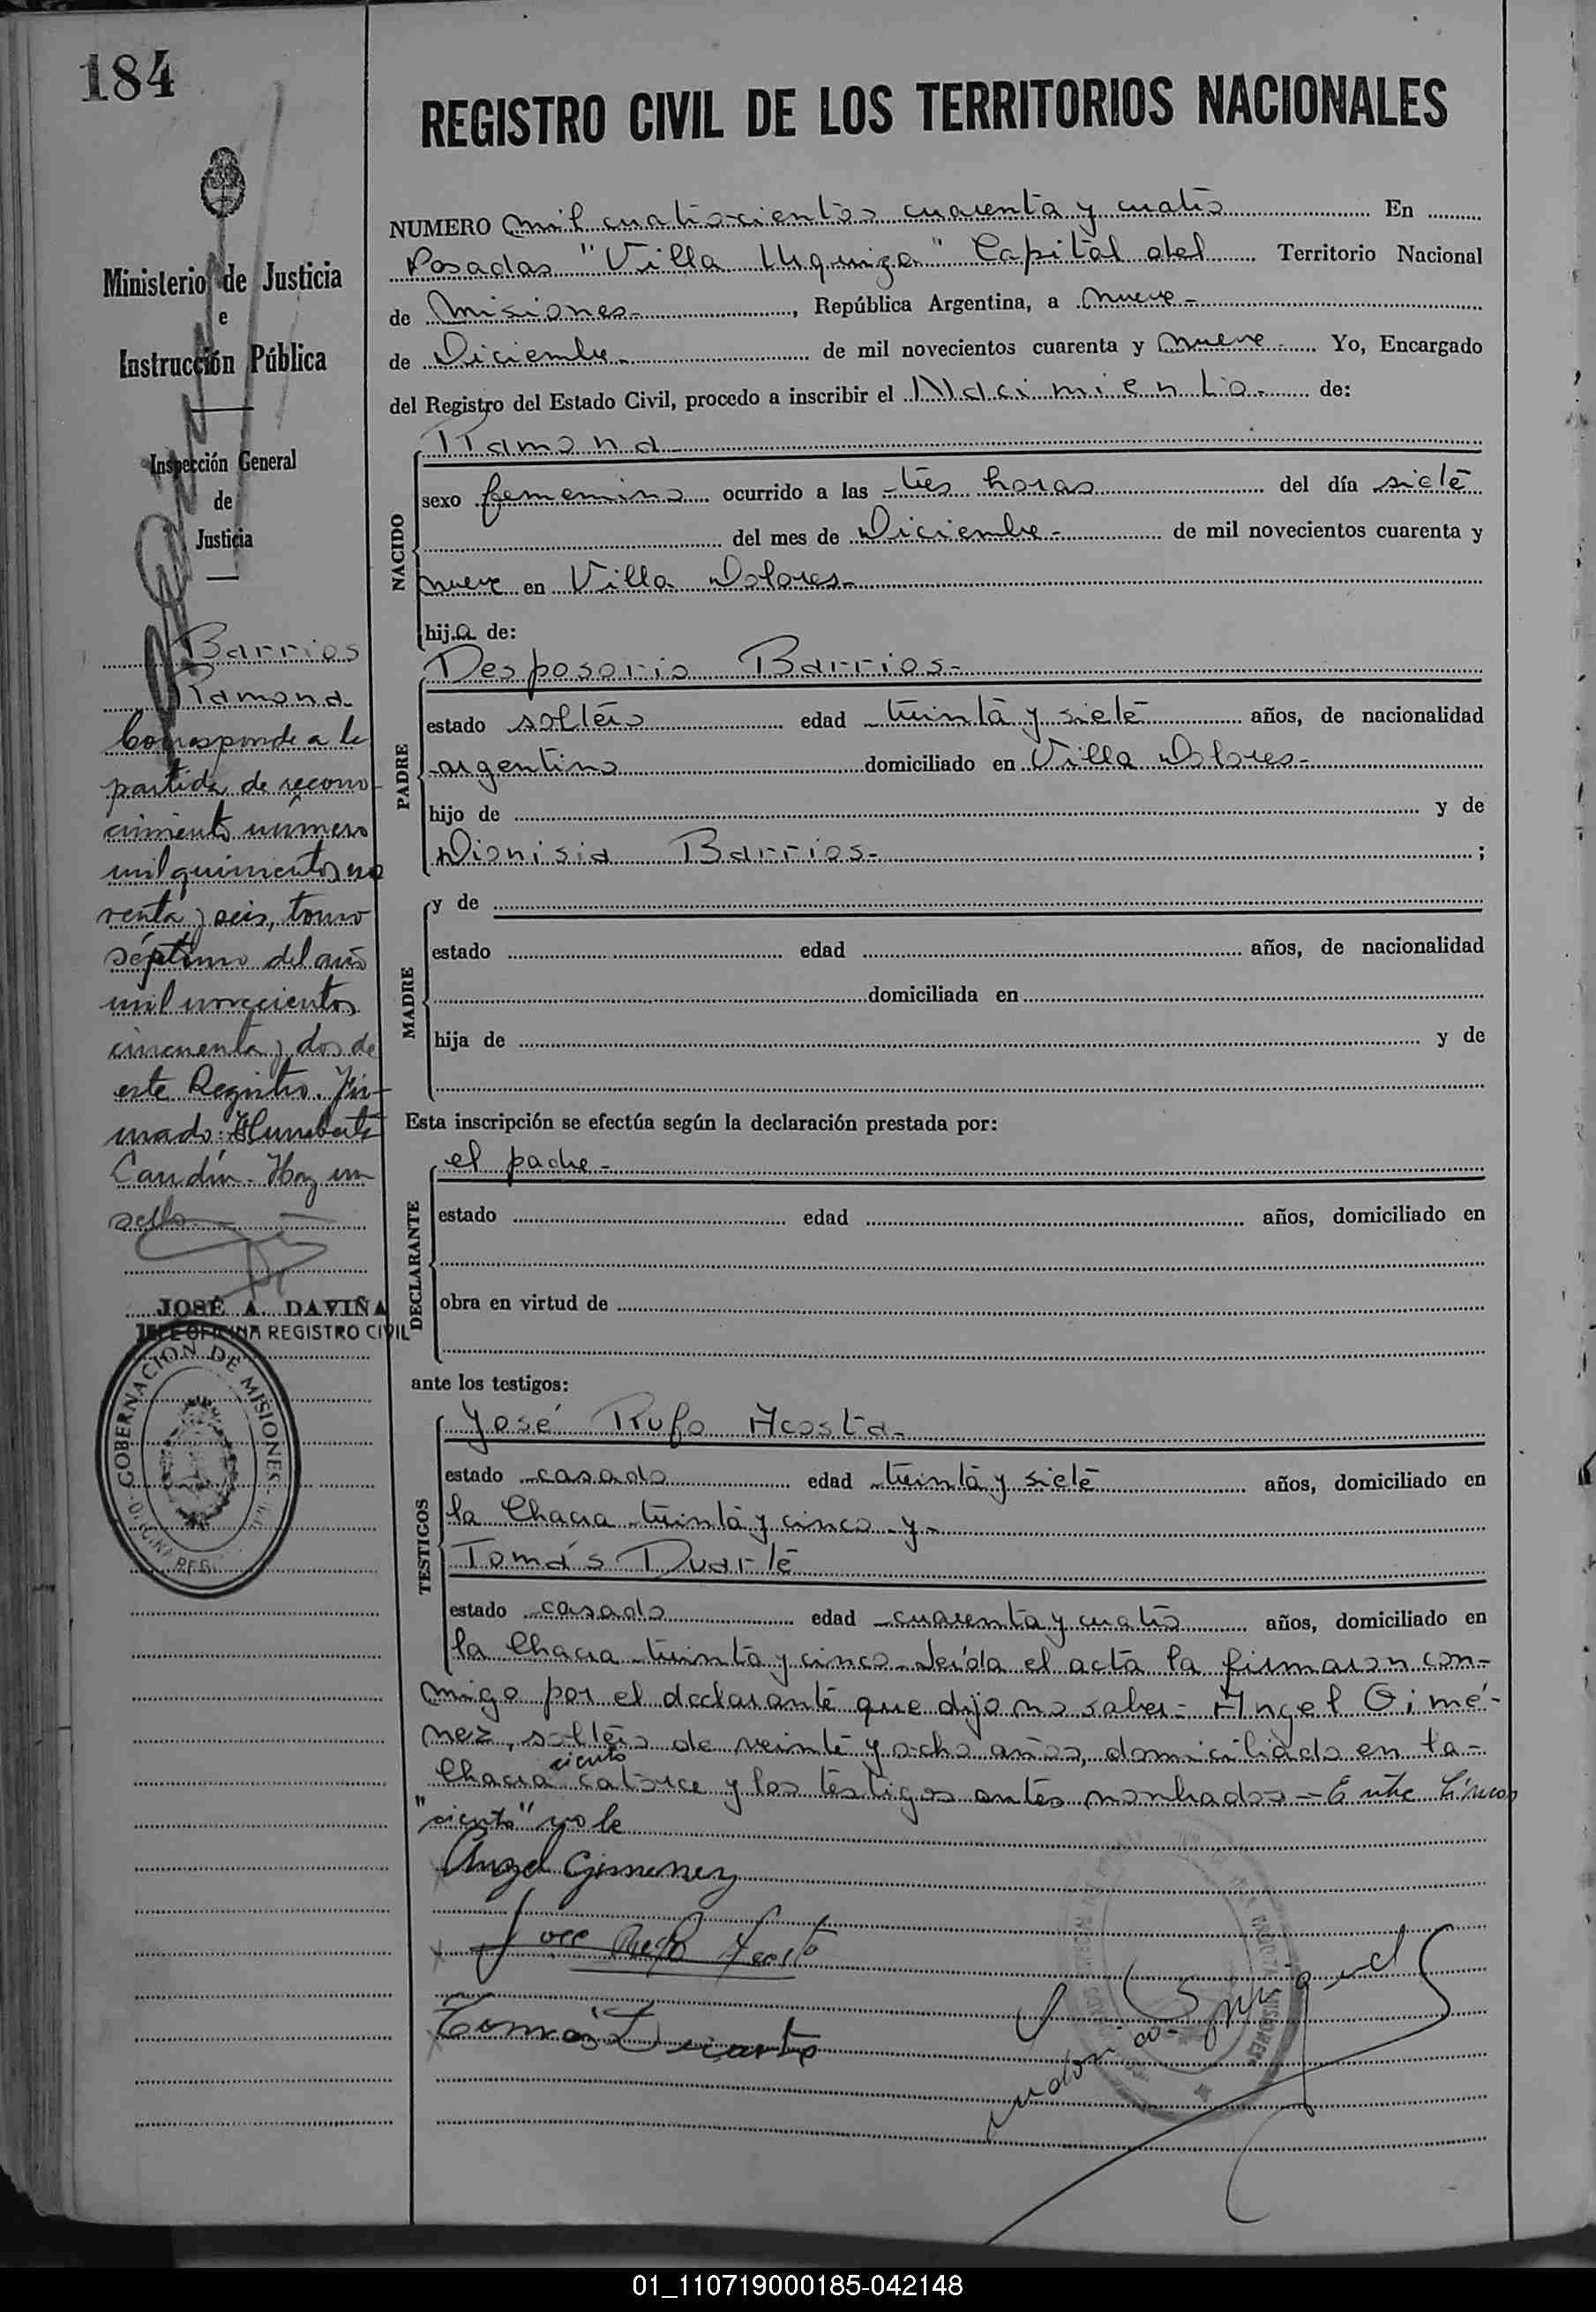 184
REGISTRO CIVIL DE LOS TERRITORIOS NACIONALES
Ministerio de Justicia
e
Instrucción Pública
Inspección General
de
Justicia
Barrios
Ramona
Corresponde a la
partida de recono-
cimiento número
mil quinientos no
venta y seis, tomo
séptimo del año
mil novecientos
cincuenta y dos de
este Registro. Fir-
mado: Humberto
Hay un
sello
JOSÉ A. DAVIÑA
JEFE OFICINA REGISTRO CIVIL
GOBERNACION DE MISIONES
NUMERO mil cuatrocientos cuarenta y cuatro En
Posadas "Villa Urquiza" Capital del Territorio Nacional
de Misiones-, República Argentina, a nueve-
de Diciembre- de mil novecientos cuarenta y nueve- Yo, Encargado
del Registro del Estado Civil, procedo a inscribir el Nacimiento- de:
Ramona
NACIDO
sexo femenino ocurrido a las tres horas del día siete
del mes de Diciembre- de mil novecientos cuarenta y
nueve en Villa Dolores-
hija de:
Desposorio Barrios-
PADRE
estado soltero edad treinta y siete años, de nacionalidad
argentino domiciliado en Villa Dolores-
hijo de y de
Dionisia Barrios- ;
MADRE
y de
estado edad años, de nacionalidad
domiciliada en
hija de y de
Esta inscripción se efectúa según la declaración prestada por:
el padre-
DECLARANTE
estado edad años, domiciliado en
obra en virtud de
ante los testigos:
José Rufo Acosta-
TESTIGOS
estado casado edad treinta y siete años, domiciliado en
la Chacra treinta y cinco-y-
Tomás Duarte
estado casado edad cuarenta y cuatro años, domiciliado en
la Chacra treinta y cinco-Leída el acta la firmaron con-
migo por el declarante que dijo no saber- Angel Gimé-
nez, soltero de veinte y ocho años, domiciliado en la-
Chacra ciento catorce y los testigos antes nombrados-Entre líneas
"ciento" vale
Angel Gimenez
Jose Rufo Acosta
Tomás Duarte
01_110719000185-042148